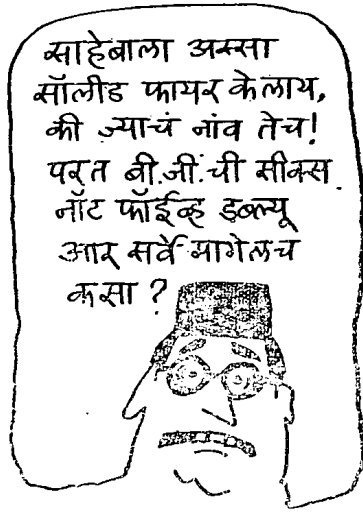 साहेबाला अस्सा
सॉलीड फायर केलाय,
की ज्याचं नांव तेच!
परत बी.जी.ची सीक्स
नॉट फॉईव्ह डब्ल्यू
आर सर्वे मागेलच
कसा?